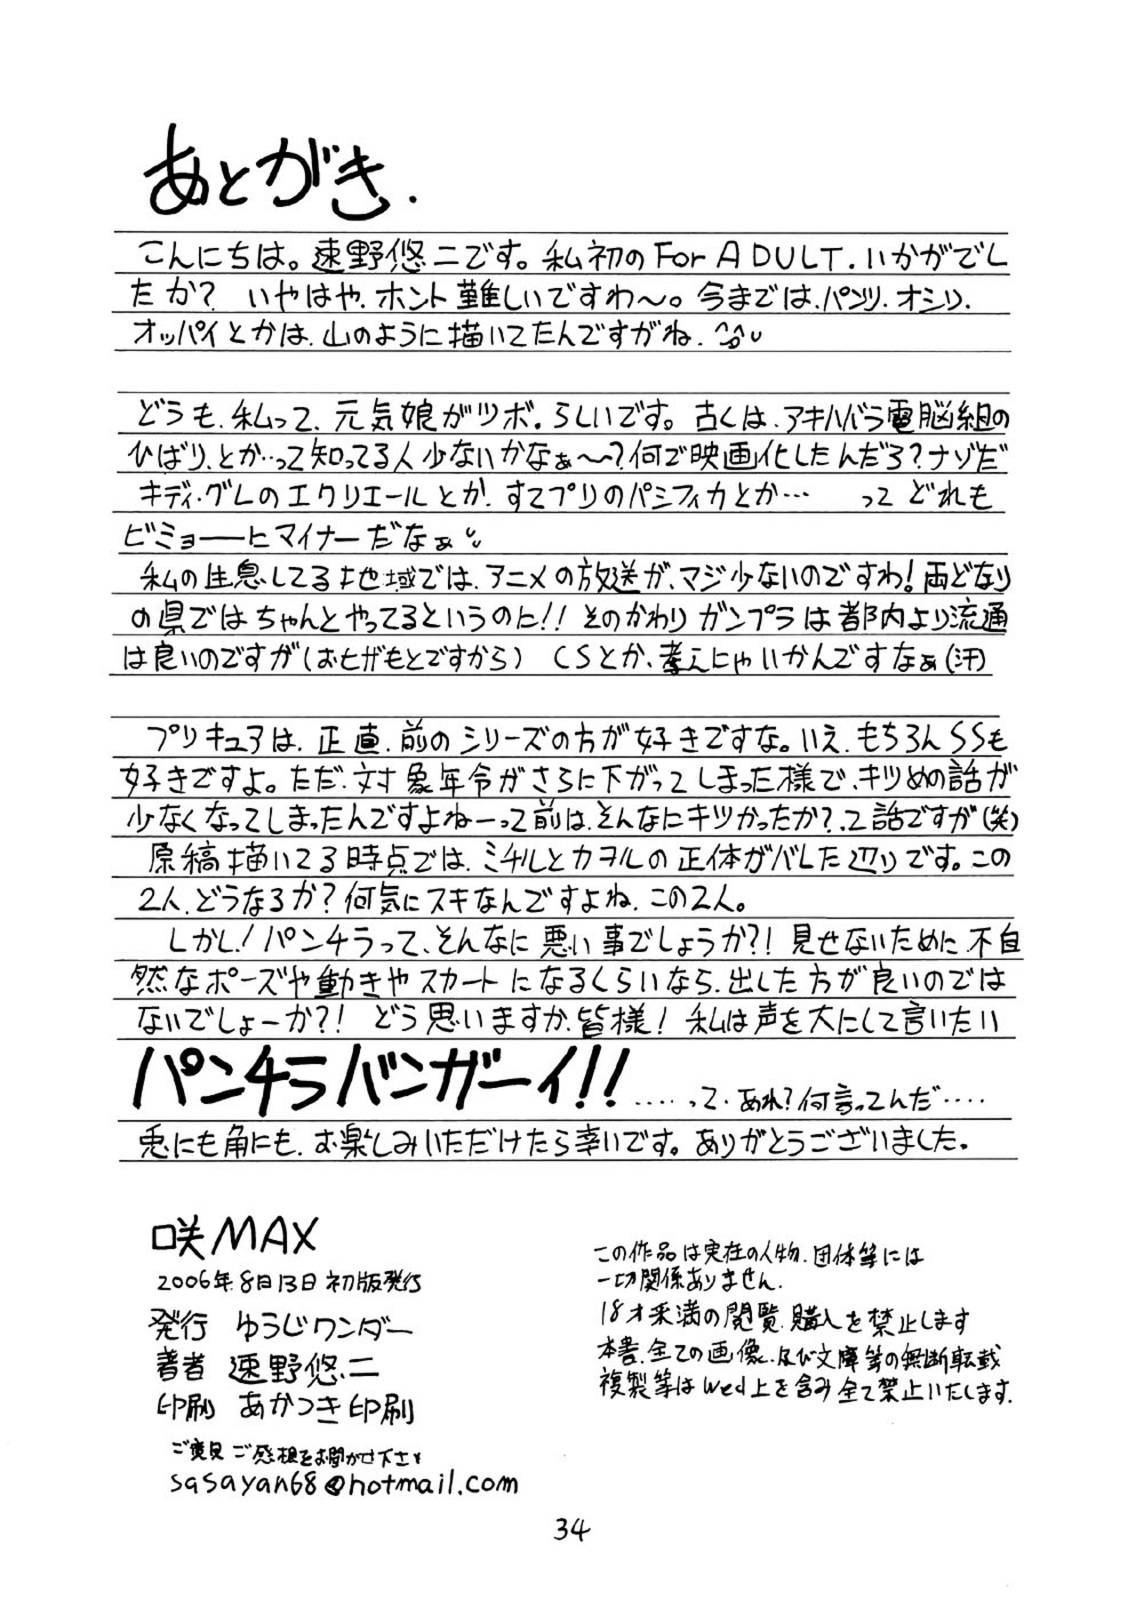 あとがき.
こんにちは。速野悠二です。私初のFor ADULT.いかがでし
たか? いやはや、ホント難しいですわ〜。今までは、パンツ、オシリ、
オッパイとかは、山のように描いてたんですがね.
どうも、私って、元気娘がツボ。らしいです。古くは、アキハバラ電脳組の
ひばり、とか…って知ってる人少ないかなぁ〜?何で映画化したんだろ?ナゾだ
キディ・グレのエクリエールとか、すてプリのパシフィカとか… って どれも
ビミョーーにマイナーだなぁ
私の生息してる地域では、アニメの放送が、マジ少ないのですわ!両どなり
の県ではちゃんとやってるというのに!! そのかわりガンプラは都内より流通
は良いのですが(おヒザもとですから) CSとか、考えにゃいかんですなぁ(汗)
プリキュアは、正直、前のシリーズの方が好きですな。いえ、もちろんSSも
好きですよ。ただ、対象年令がさらに下がってしまった様で、キツめの話が
少なくなってしまったんですよねーって前は、そんなにキツかったか?って話ですが(笑)
原稿描いてる時点では、ミチルとカヲルの正体がバレた辺りです。この
2人、どうなるか?何気にスキなんですよね、この2人。
しかし!パンチラって、そんなに悪い事でしょうか?!見せないために、不自
然なポーズや動きやスカートになるくらいなら、出した方が良いのでは
ないでしょーか?! どう思いますか、皆様! 私は声を大にして言いたい
パンチラバンガーイ!! ……って、あれ?何言ってんだ……
兎にも角にも、お楽しみいただけたら幸いです。ありがとうございました。
咲MAX
2006年8月13日初版発行
発行 ゆうじワンダー
著者 速野悠二
印刷 あかつき印刷
ご意見 ご感想をお聞かせ下さい
sasayan68@hotmail.com
この作品は実在の人物、団体等には
一切関係ありません.
18才未満の閲覧、購入を禁止します
本書、全ての画像、及び文庫等の無断転載
複製等はWed上を含み全て禁止いたします.
34